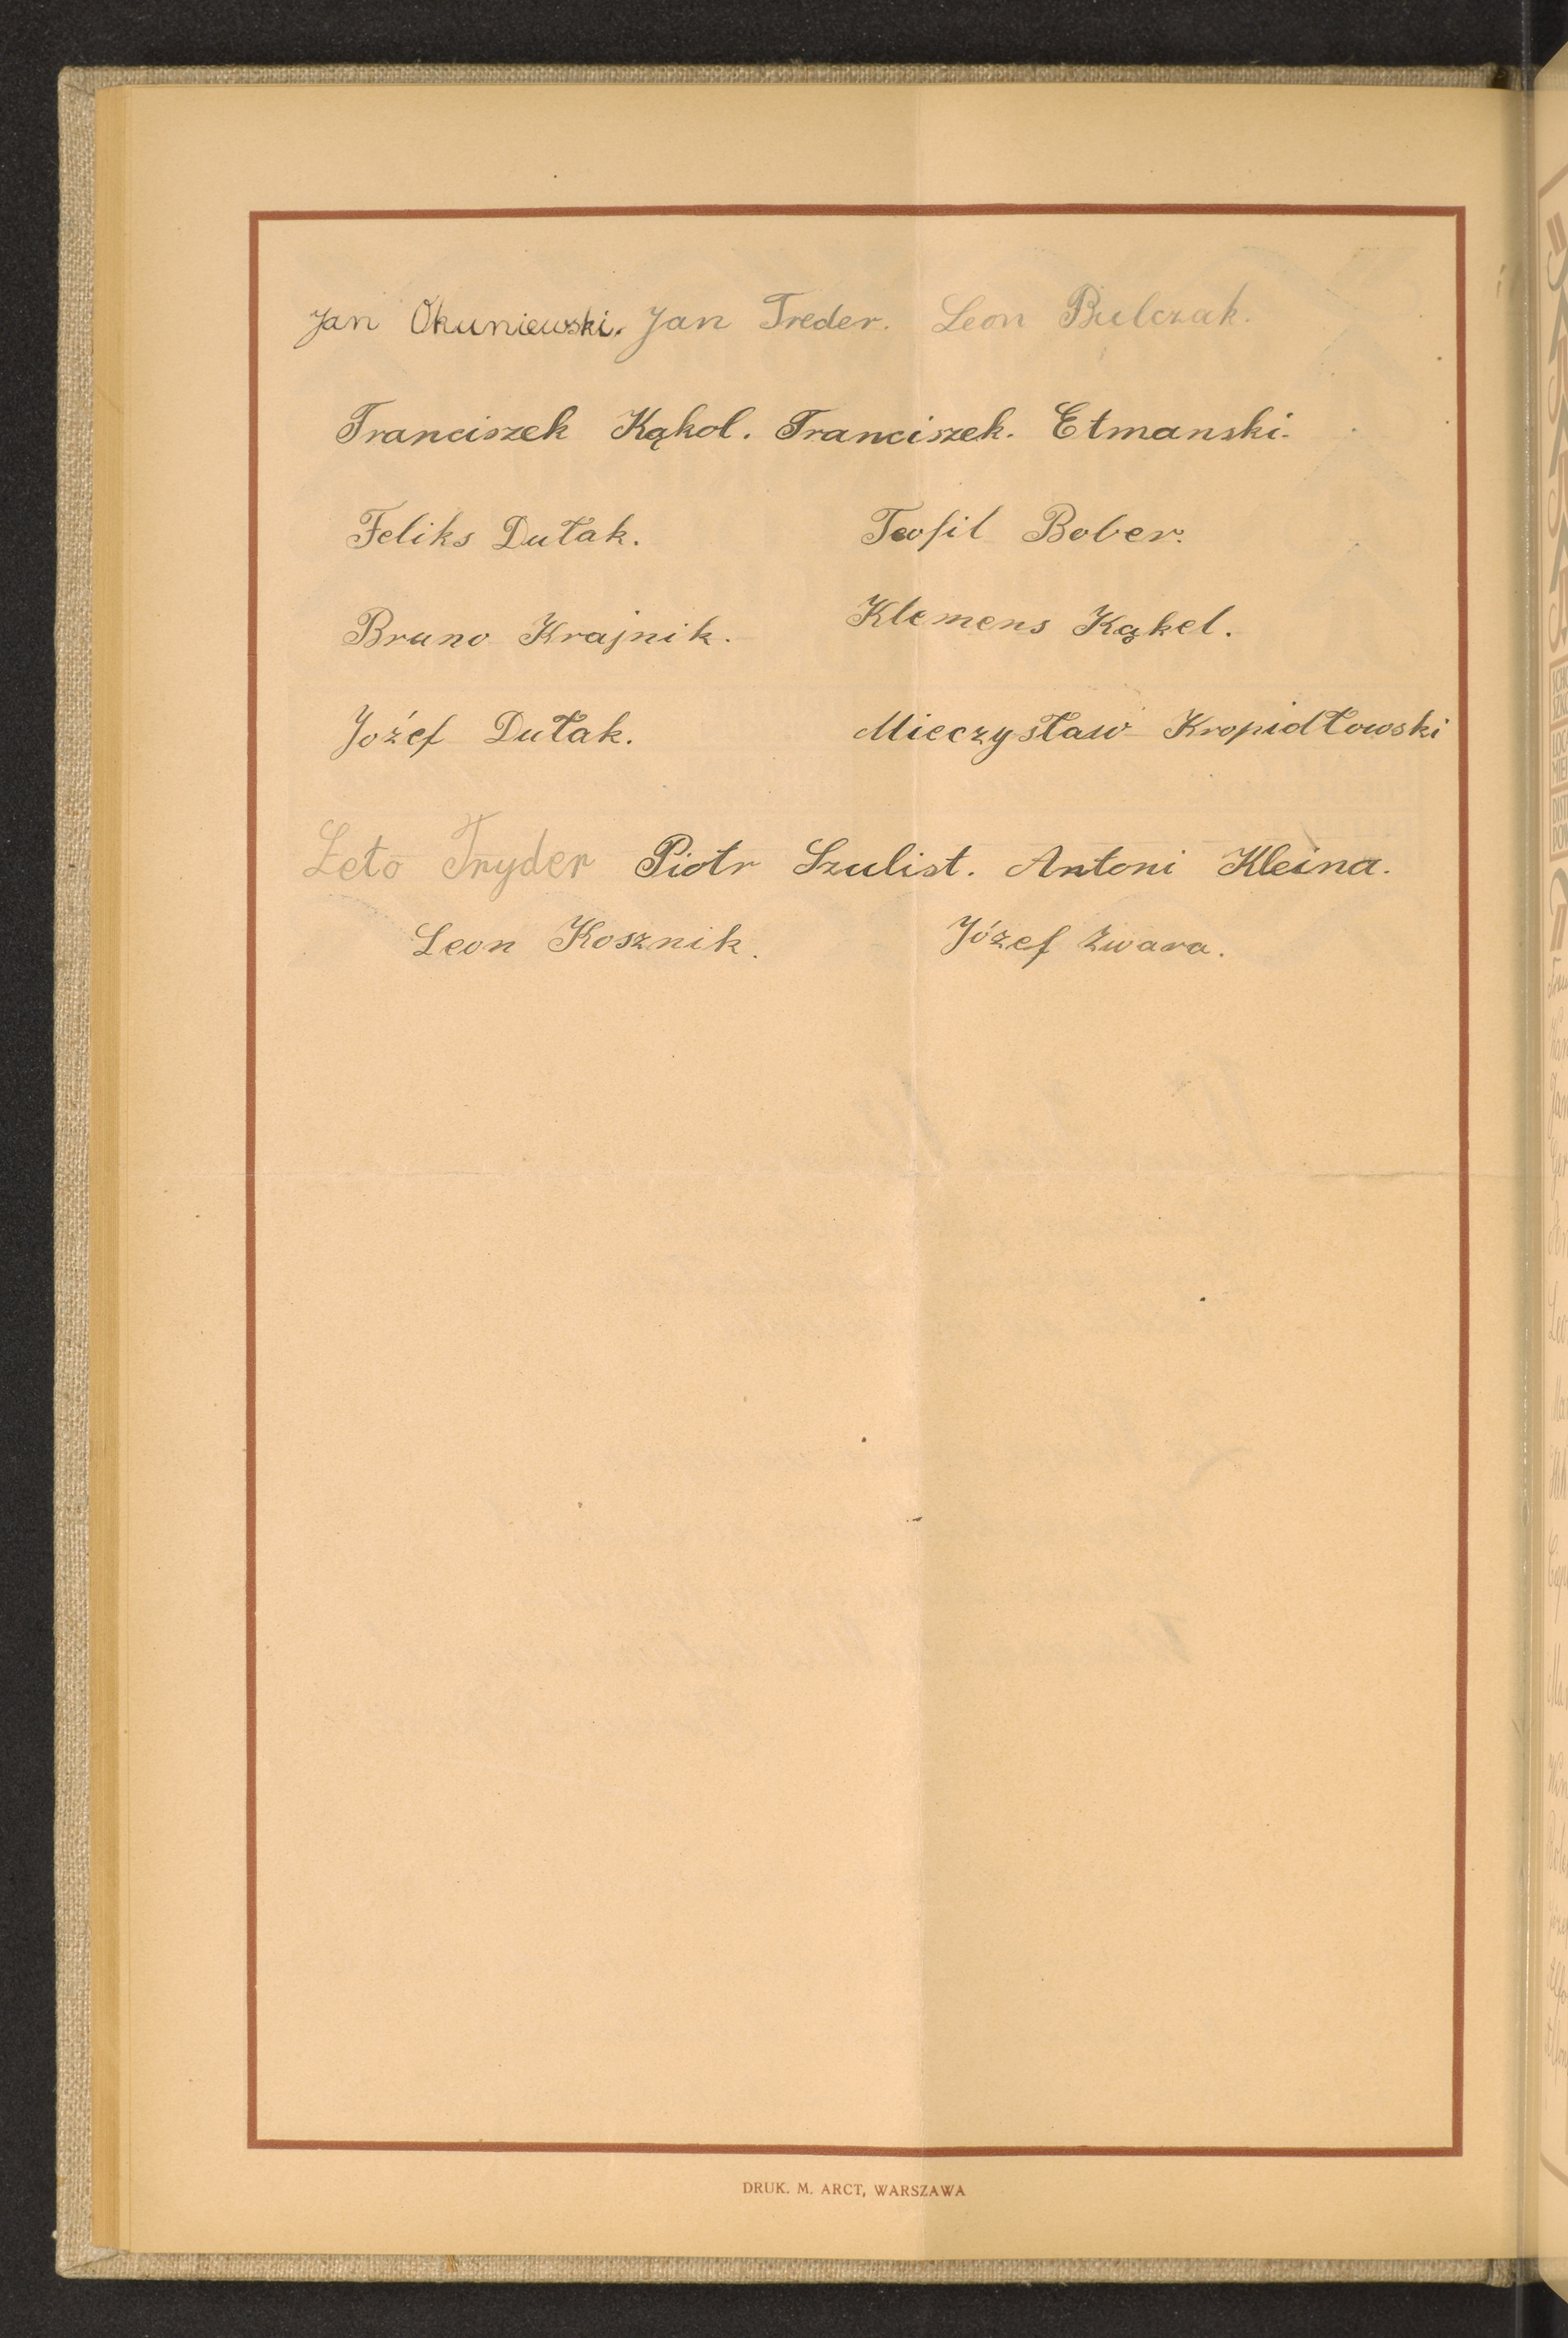 Jan Okuniewski. Jan Treder. Leon Bulczak.
Franciszek Kąkol. Franciszek. Etmanski.
Feliks Dułak. Teofil Bober.
Bruno Krajnik. Klemens Kąkel.
Józef Dułak. Mieczysław Kropidłowski
Leto Fryder Piotr Szulist. Antoni Kleina.
Leon Kosznik. Józef Zwara.
DRUK. M. ARCT, WARSZAWA